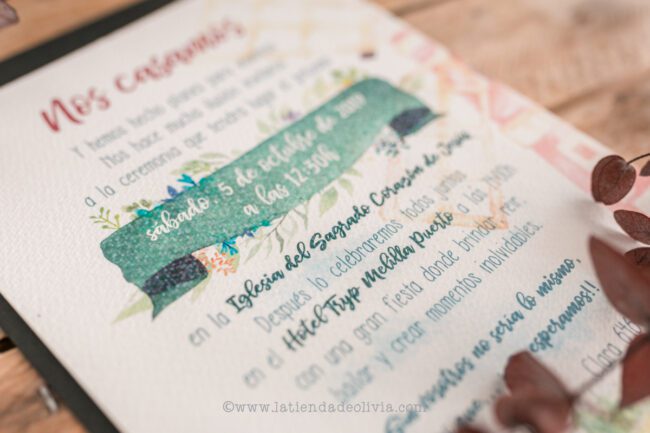 Nos casamos
Y hemos hecho planes para
Nos hace mucha ilusión
a la ceremonia que tendrá lugar el próximo
sábado, 5 de octubre de 2019
a las 12:30h
en la Iglesia del Sagrado Corazón de Jesús
Después lo celebraremos todos juntos
en el Hotel Tryp Melilla Puerto a las
con una gran fiesta donde brindar, reír,
bailar y crear momentos inolvidables.
vosotros no sería lo mismo,
esperamos!!
Clara
©www.latiendadeolivia.com